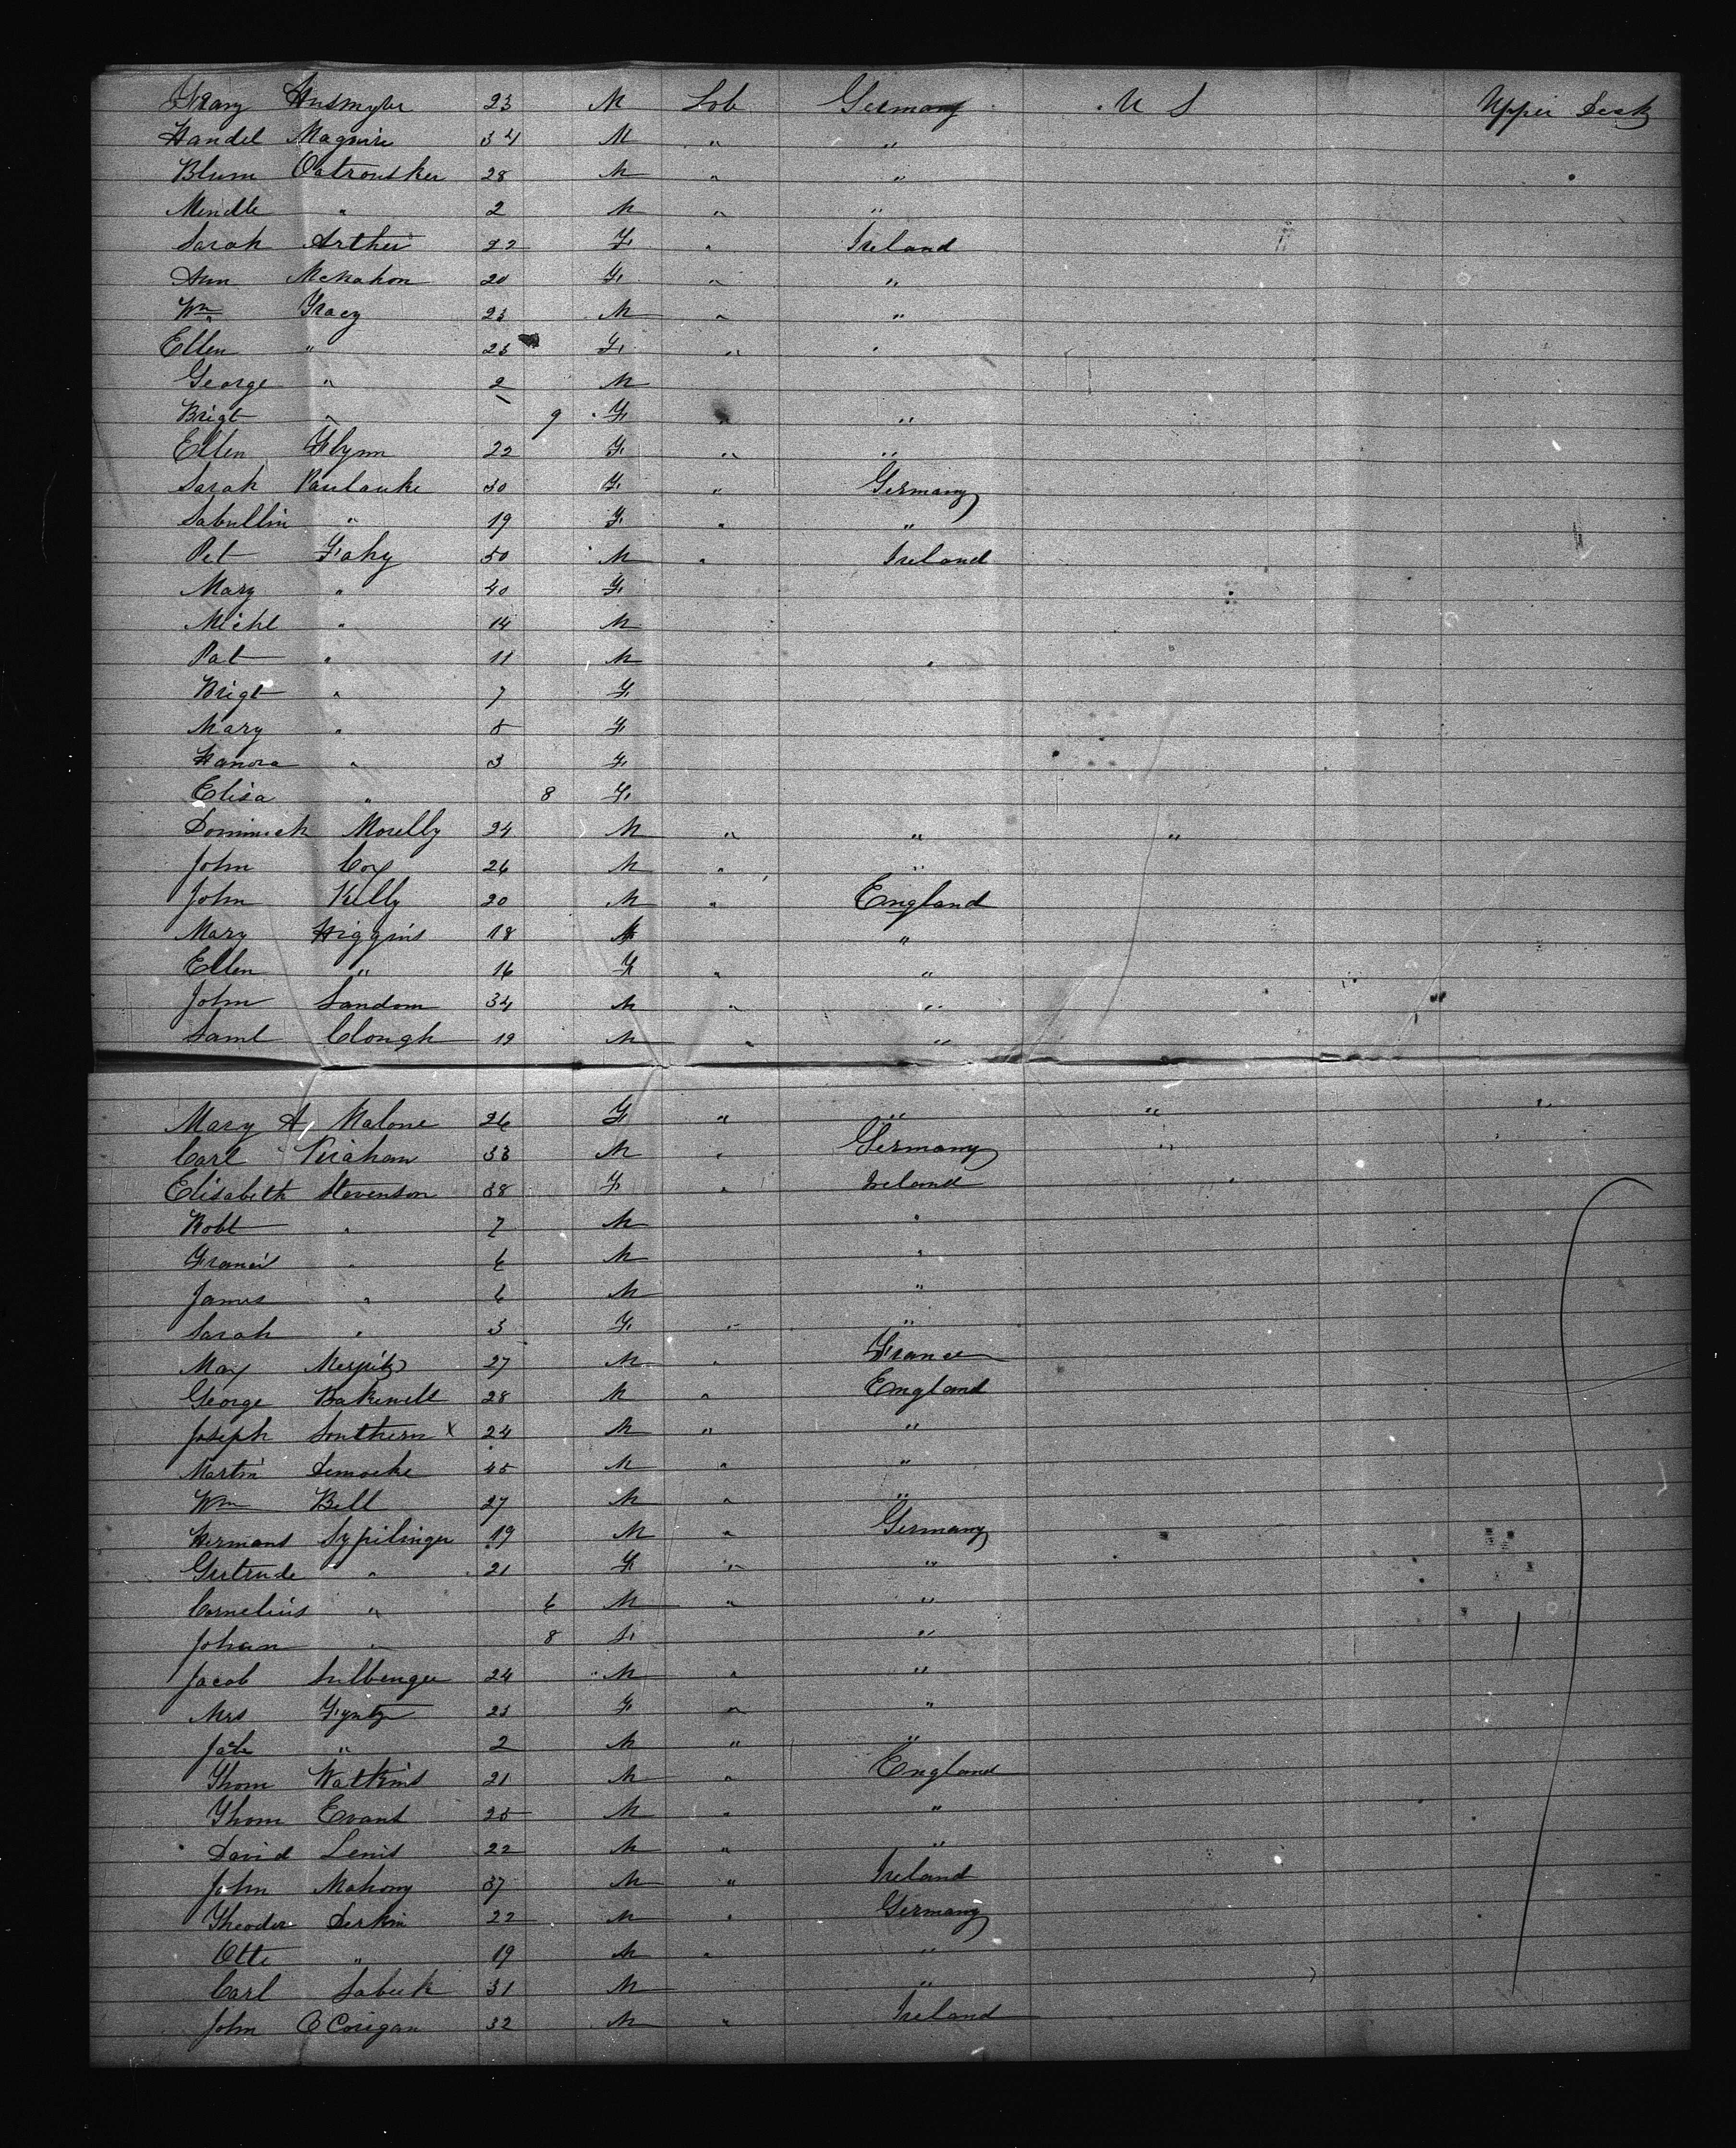 Husmyer 23 M Lab Germany U S Upper Deck
Handel Maguire 34 M " "
Blum Ostrousker 28 M " "
Mendle " 2 M " "
Sarah Arther 22 F " Ireland
Ann McMahon 20 F " "
Wm Tracy 23 M " "
Ellen " 23 F " "
George " 2 M
Brigt " 9 F "
Ellen Flynn 22 F " "
Sarah Paulauke 30 F " Germany
Sabullin " 19 F " "
Pet Fahy 50 M " Ireland
Mary " 40 F
Michl " 14 M
Pat " 11 M "
Brigt " 7 F
Mary " 5 F
Hanora " 3 F
Elisa " 8 F
Dominick Morelly 24 M " " "
John Cox 26 M " "
John Kelly 20 M " England
Mary Higgins 18 F "
Ellen " 16 F " "
John Sandom 34 M " "
Saml Clough 19 M " "
Mary A Malone 26 F " " " "
Carl 33 M " Germany "
Elisabeth Stevenson 38 F " Ireland
Robt " 7 M "
Francis " 6 M "
James " 6 M "
Sarah " 3 F " "
Max 27 M " France
George Bakewell 28 M " England
Joseph Southern x 24 M " "
Martin Democke 45 M " "
Wm Bell 27 M " "
Hermans Sypilinger 19 M " Germany
Gertrude " 21 F " "
Cornelius " 6 M " "
Johan " 8 " "
Jacob 24 M " "
Mrs 23 F " "
" 2 M " "
Thom Watkins 21 M " England
Thom Evans 25 M " "
David Lewis 22 M " "
John Mahony 37 M " Ireland
Theoder Derkin 22 M " Germany
Otto " 19 M " "
Carl Sabeck 31 M "
John O Corigan 32 M " Ireland